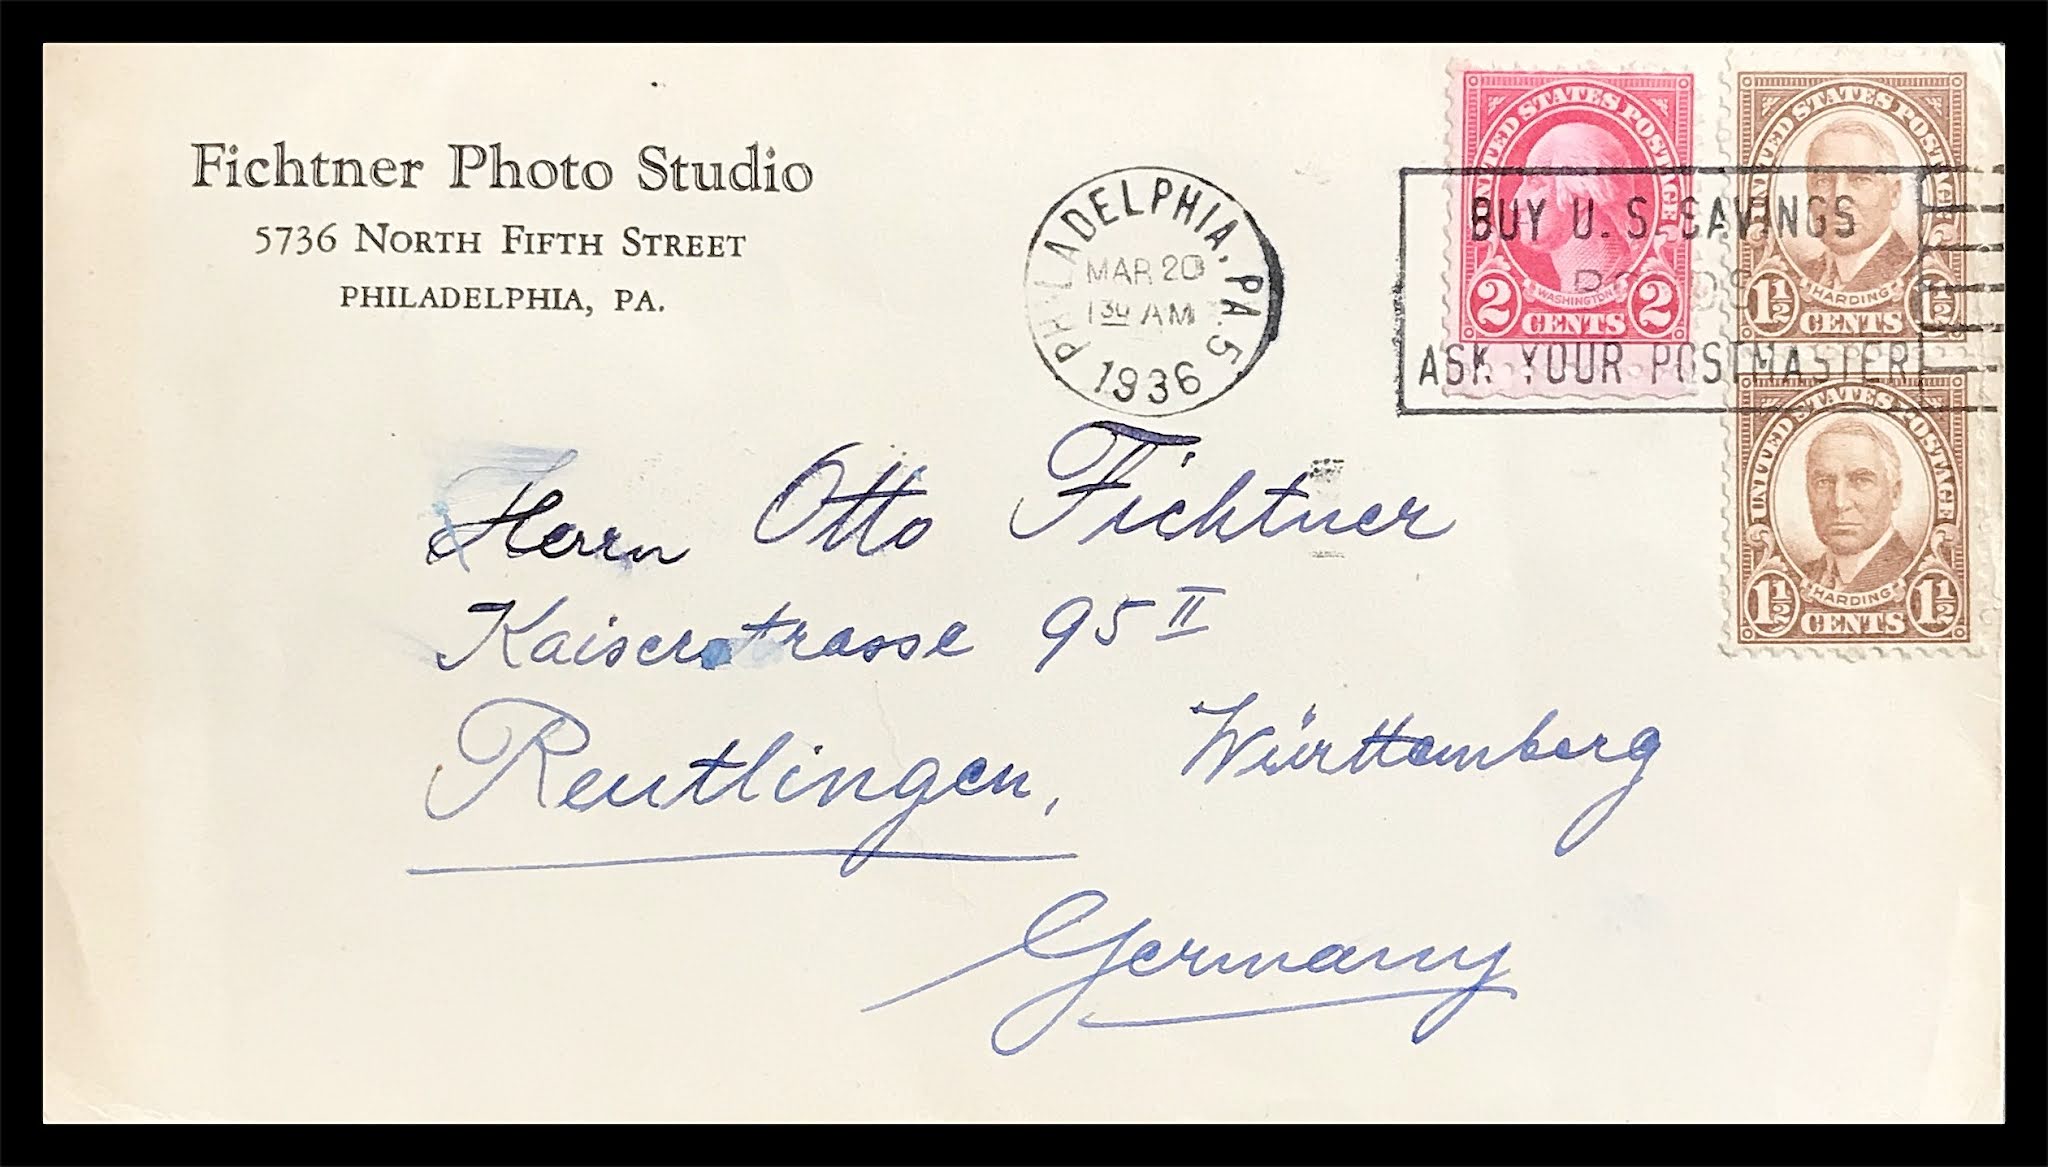 Fichtner Photo Studio
5736 NORTH FIFTH STREET
PHILADELPHIA, PA.
PHILADELPHIA, PA. 5
MAR 20
1 30 AM
1936
BUY U. S. SAVINGS
BONDS
ASK YOUR POSTMASTER
UNITED STATES POSTAGE
WASHINGTON
2 CENTS 2
UNITED STATES POSTAGE
HARDING
1½ CENTS 1½
UNITED STATES POSTAGE
HARDING
1½ CENTS 1½
Herrn Otto Fichtner
Kaiserstrasse 95 II
Reutlingen, Württemberg
Germany